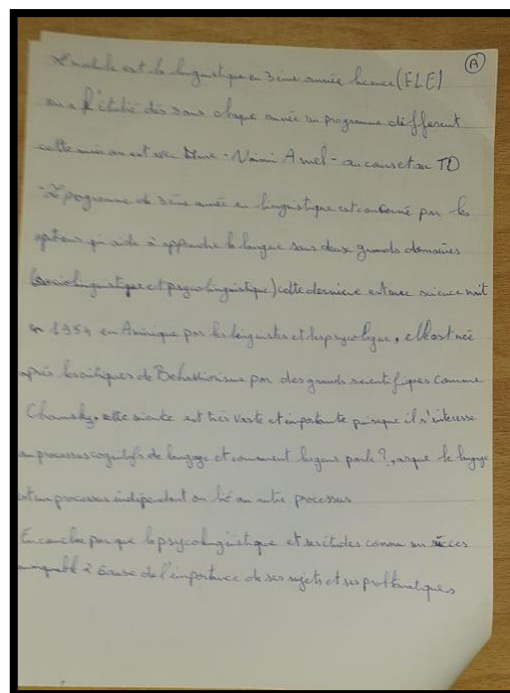 A
Le module est la linguistique en 3eme année licence (FLE)
on a l'étudié dès 3ans chaque année un programme différent
cette année on est avec Mme - Naimi Amel - au cours et au TD
- Le programme de 3eme année en linguistique est concerné par les
qui aide à apprendre la langue sous deux grands domaines
(sociolinguistique et psycolinguistique) cette derniere est une science
en 1954 en Amérique par les linguistes et les psycologue, elle est née
après les critiques de Behaviorisme par des grands scientifiques comme
Chomsky, cette science est très vaste et importante puisque il s'interesse
au processus cognitifs de langage et comment les gens parle ?, est que le langage
est un processus indépendant ou lié au autre processus
En conclue par que la psycolinguistique et ses études connu un succes
remarquable à cause de l'importance de ses sujets et ses problématiques